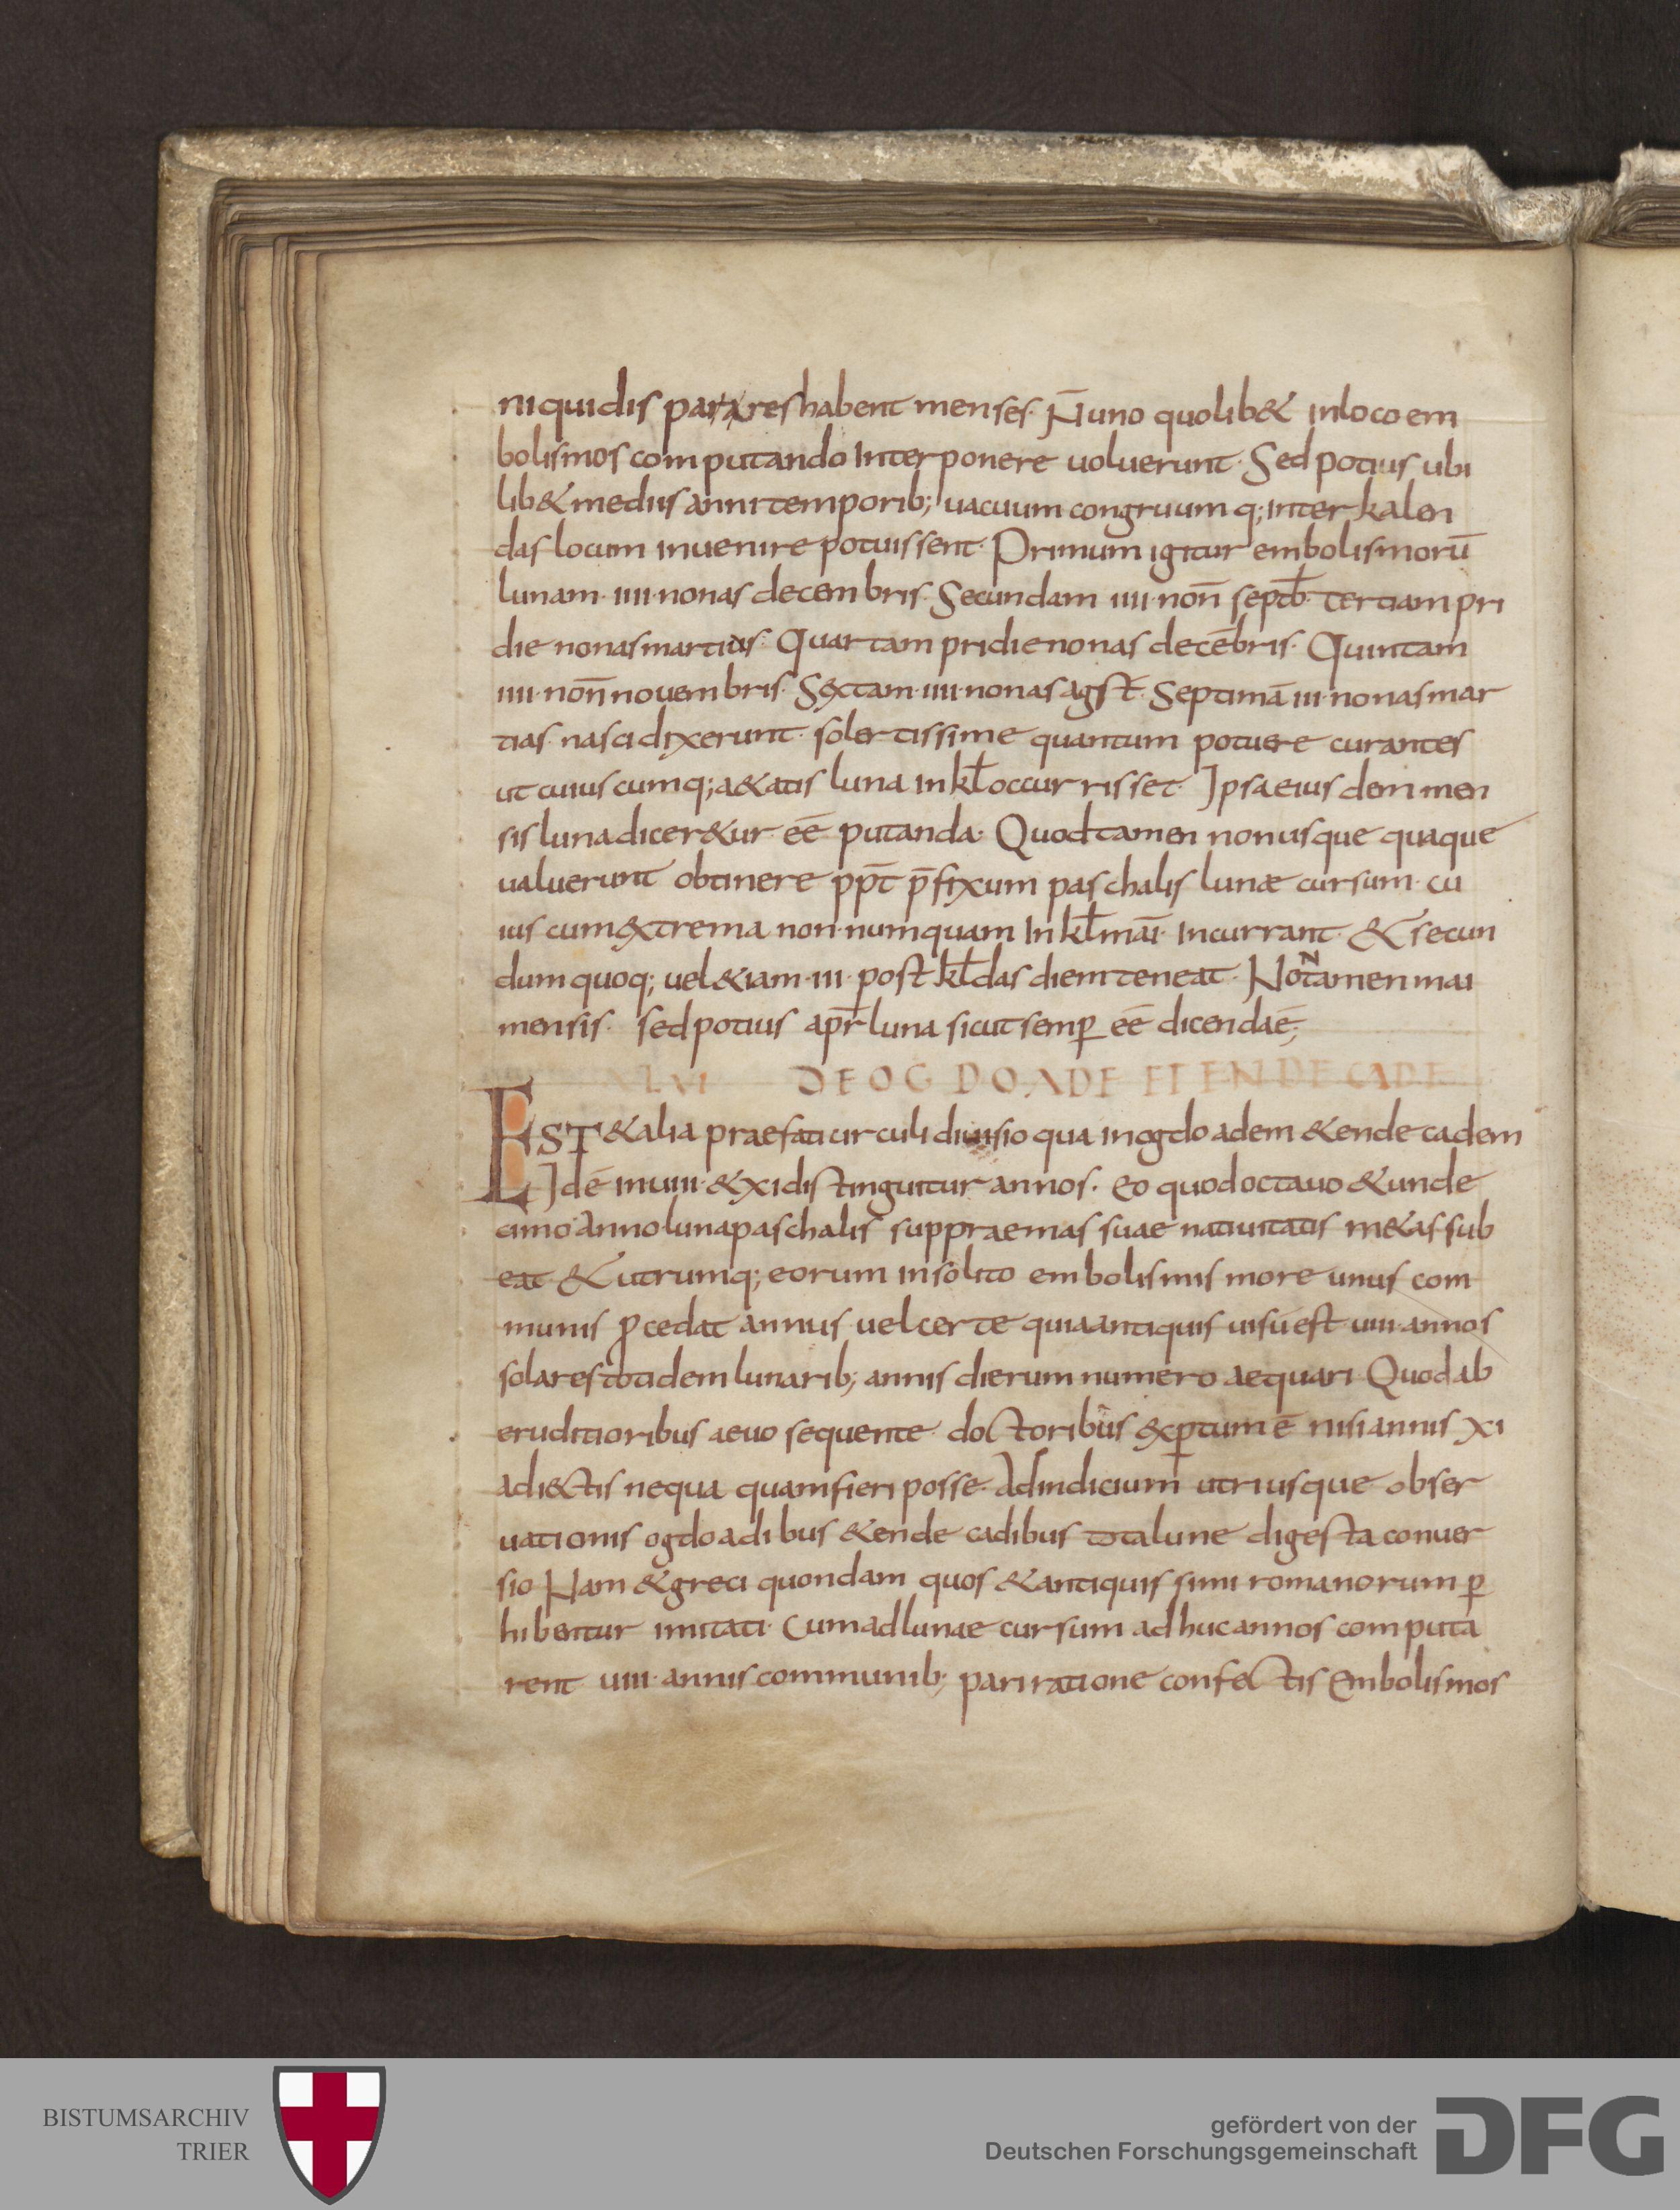 niquidis pares habent menses. N̄ uno quolib& inloco em
bolismos computando interponere uoluerunt. Sed potius ubi
lib& mediis anni temporib; uacuum congruumq; inter kalen
das locum inuenire potuissent. Primum igitur embolismorū
lunam ·iiii· nonas decembris. Secundam iiii· noñ septb̄. tertiam pri
die nonas martias. Quartam pridie nonas decēbris. Quintam
iiii· noñ nouembris. Sextam ·iiii· nonas agst̄. Septimā iii· nonas mar
tias nasci dixerunt. solertissime quantum potuere curantes
ut cuiuscumq; a&atis luna in kl̄ occurrisset. Ipsa eiusdem men
sis luna dicer&ur eē putanda. Quod tamen non usquequaque
ualuerunt obtinere pp̄t p̄fixum paschalis lunæ cursum. cu
ius cum extrema non numquam in kl̄ māi· incurrant. & secun
dum quoq; uel &iam ·iii· post kl̄das diem teneat. Noᴺ tamen mai
mensis. sed potius apr̄ luna sicut semp̱ eē dicenda ē;
XLVI DE OGDOADE ET ENDECADE
EST & alia praefati circuli diuisio qua in ogdoadem & endecadem
Idē in uiii· & xi distinguitur annos. eo quod octauo & unde
cimo anno luna paschalis suppraemas suae natiuitatis m&as sub
eat & utrumq; eorum insolito embolismis more unus com
munis p̱cedat annus uel certe quia antiquis uisū est uiii· annos
solares totidem lunarib; annis dierum numero aequari Quod ab
eruditioribus aeuo sequente doctoribus exp̱tum ē nisi annis xi
adiectis nequaquam fieri posse. Ad indicium utriusque obser
uationis ogdoadibus & endecadibus tota lune digesta conuer
sio Nam & greci quondam quos & antiquissimi romanorum p̱
hibentur imitati. Cum ad lunae cursum adhuc annos computa
rent uiii· annis communib; pari ratione confectis embolismos
BISTUMSARCHIV
TRIER
gefördert von der
Deutschen Forschungsgemeinschaft
DFG